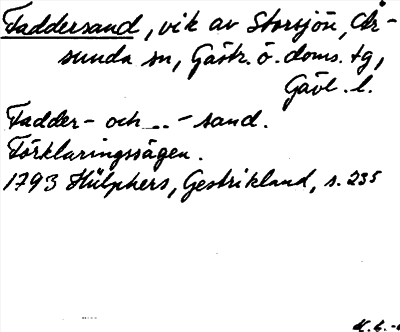 Faddersand, vik av Storsjön, År-
sunda sn, Gästr. ö. doms. tg,
Gävl. l.
Fadder- och _ _ - sand.
Förklaringssägen.
1793 Hülphers, Gestrikland, s. 235